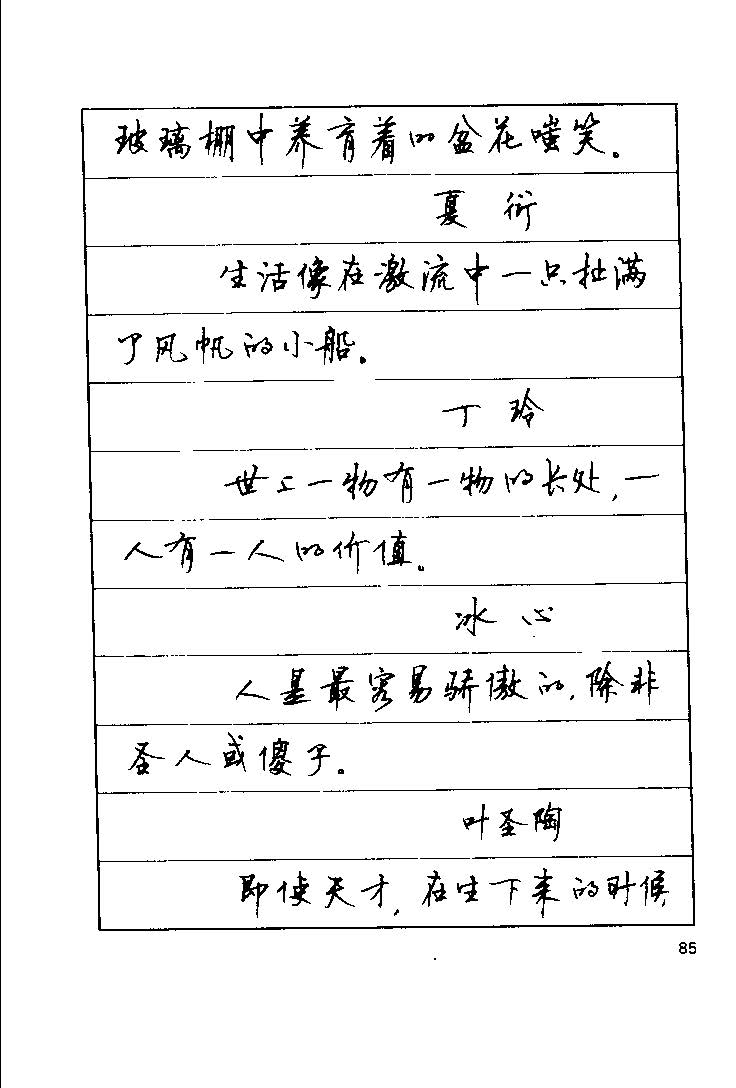 玻璃棚中养育着的盆花嗤笑。
夏 衍
生活像在激流中一只扯满
了风帆的小船。
丁 玲
世上一物有一物的长处,一
人有一人的价值。
冰 心
人是最容易骄傲的,除非
圣人或傻子。
叶圣陶
即使天才,在生下来的时候
85